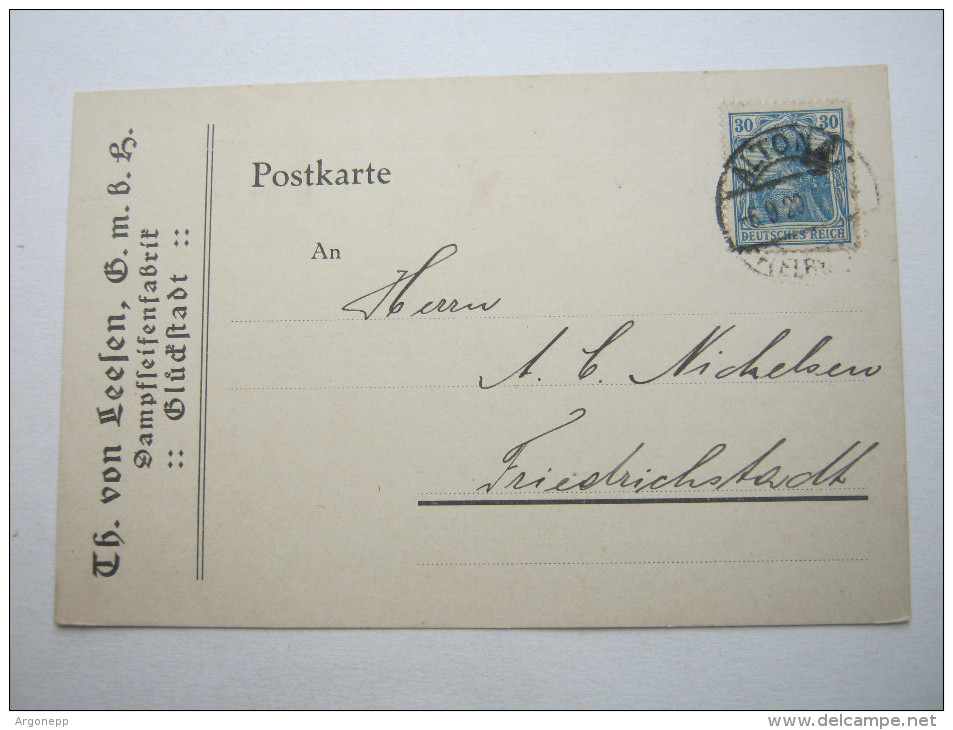 Th. von Leesen, G. m. b. H.
Dampfseifenfabrik
:: Glückstadt ::
Postkarte
An
Herrn
A. C. Nickelsen
Friedrichstadt
30 30
DEUTSCHES REICH
ALTONA
Argonepp
www.delcampe.net